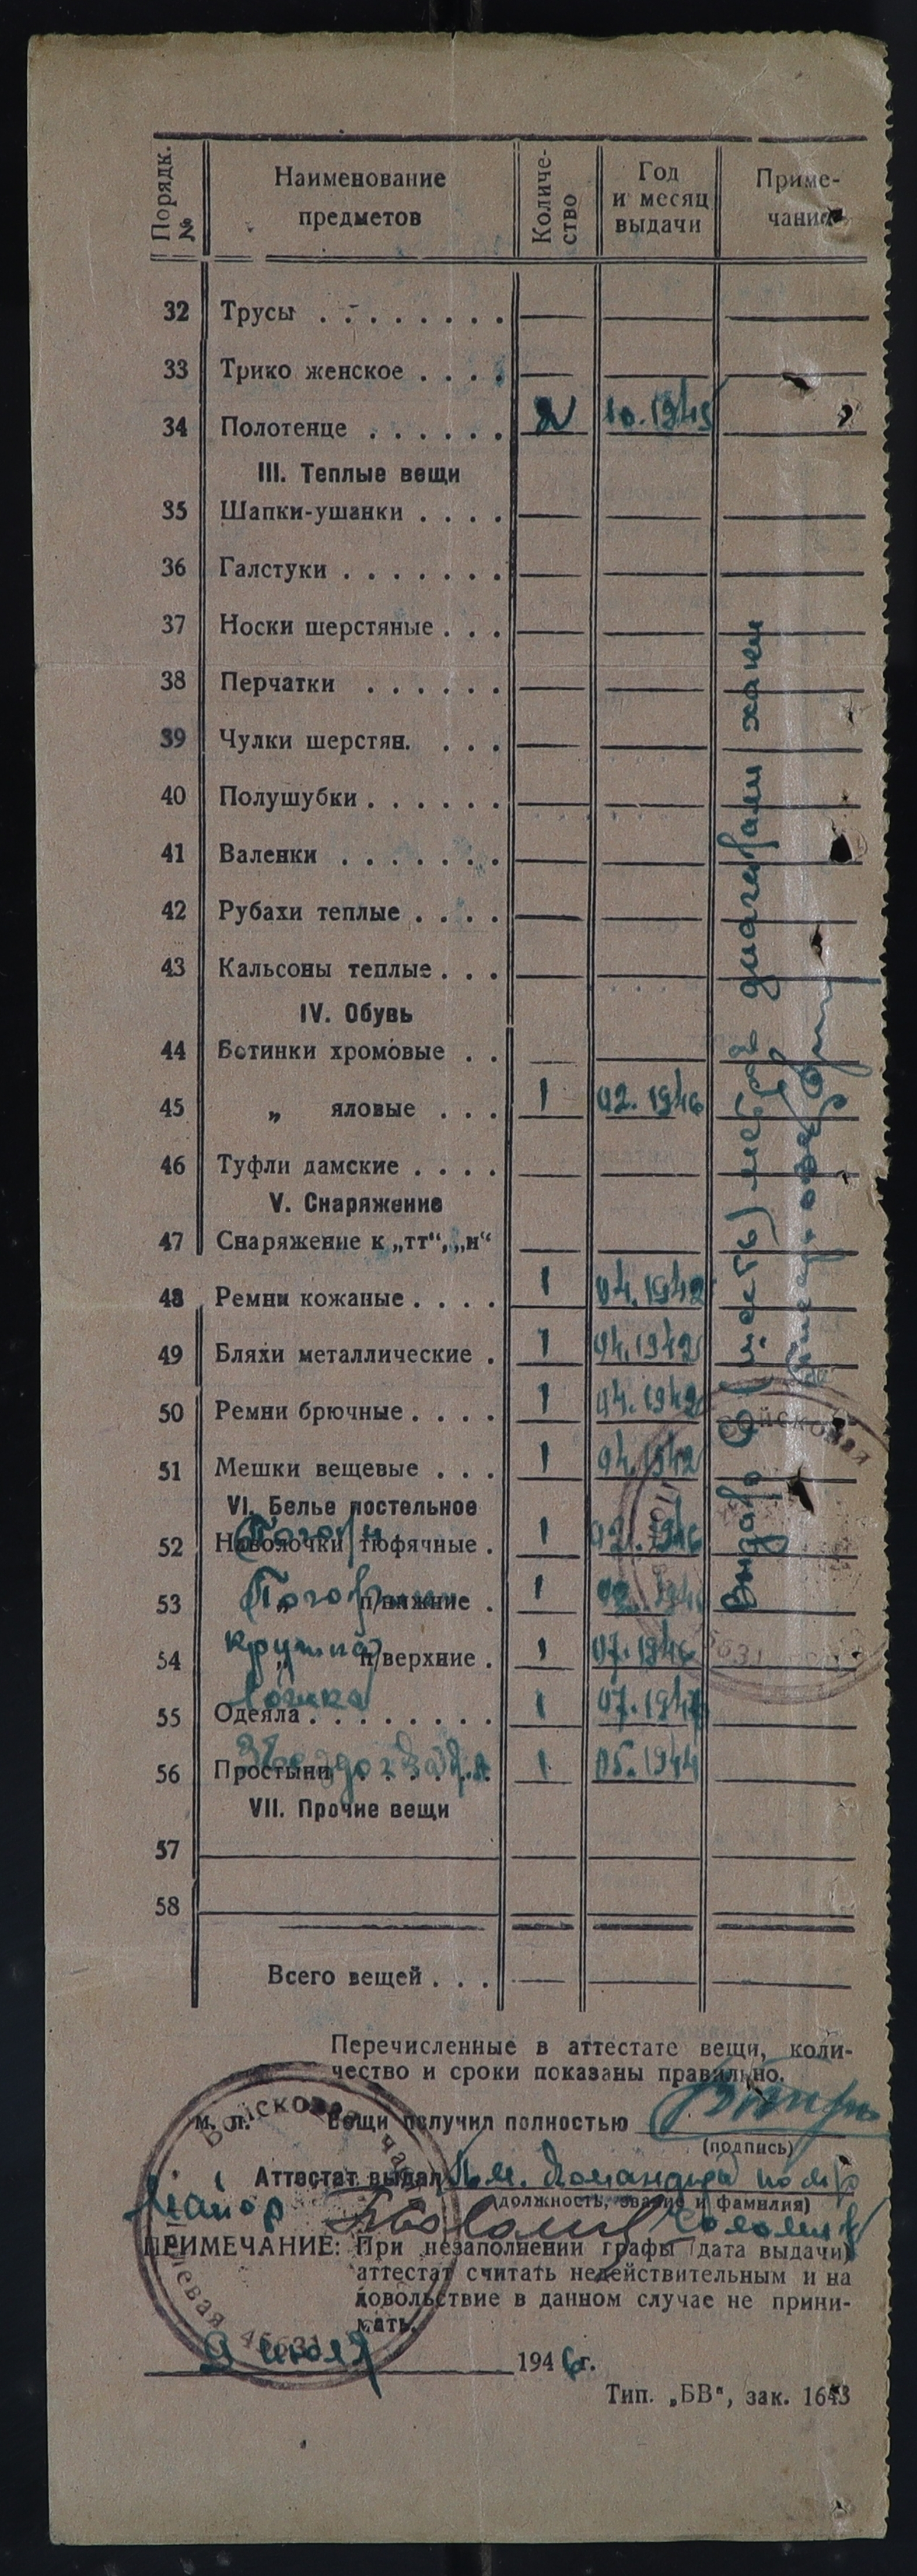 Порядк. № Наименование предметов Количе-ство Год и месяц выдачи Приме-чание
32 Трусы . . . . . . . . — — —
33 Трико женское . . . . — — —
34 Полотенце . . . . . . 2 10.1945
III. Теплые вещи
35 Шапки-ушанки . . . . — — —
36 Галстуки . . . . . . . — — —
37 Носки шерстяные . . . — — —
38 Перчатки . . . . . . — — —
39 Чулки шерстян. . . . — — —
40 Полушубки . . . . . . — — —
41 Валенки . . . . . . . — — —
42 Рубахи теплые . . . . — — —
43 Кальсоны теплые . . . — — —
IV. Обувь
44 Ботинки хромовые . . — — —
45 „ яловые . . . 1 02.1946
46 Туфли дамские . . . . — — —
V. Снаряжение
47 Снаряжение к „тт“, „н“ — — —
48 Ремни кожаные . . . . 1 04.1942
49 Бляхи металлические . 1 04.1942
50 Ремни брючные . . . . 1 04.1942
51 Мешки вещевые . . . 1 04.1942
VI. Белье постельное
52 Наволочки тюфячные . 1 02.1946
Погоны
53 „ п/нижние . 1
54 „ п/верхние . 1 07.1946
кружка
55 Одеяла . . . . . . . . 1
ложка
56 Простыни . . . . . . 1 05.1944
VII. Прочие вещи
57
58
Всего вещей . . . — — —
Выдано метра диагонали хаки
Войсковая
Перечисленные в аттестате вещи, коли-
чество и сроки показаны правильно.
м. п. Вещи получил полностью
(подпись)
Аттестат выдал Пом. Командира по
(должность, звание и фамилия)
Майор
ПРИМЕЧАНИЕ: При незаполнении графы (дата выдачи)
аттестат считать недействительным и на
довольствие в данном случае не прини-
мать.
Войсковая часть полевая
9 июля 1946 г.
Тип. „БВ“, зак. 1643